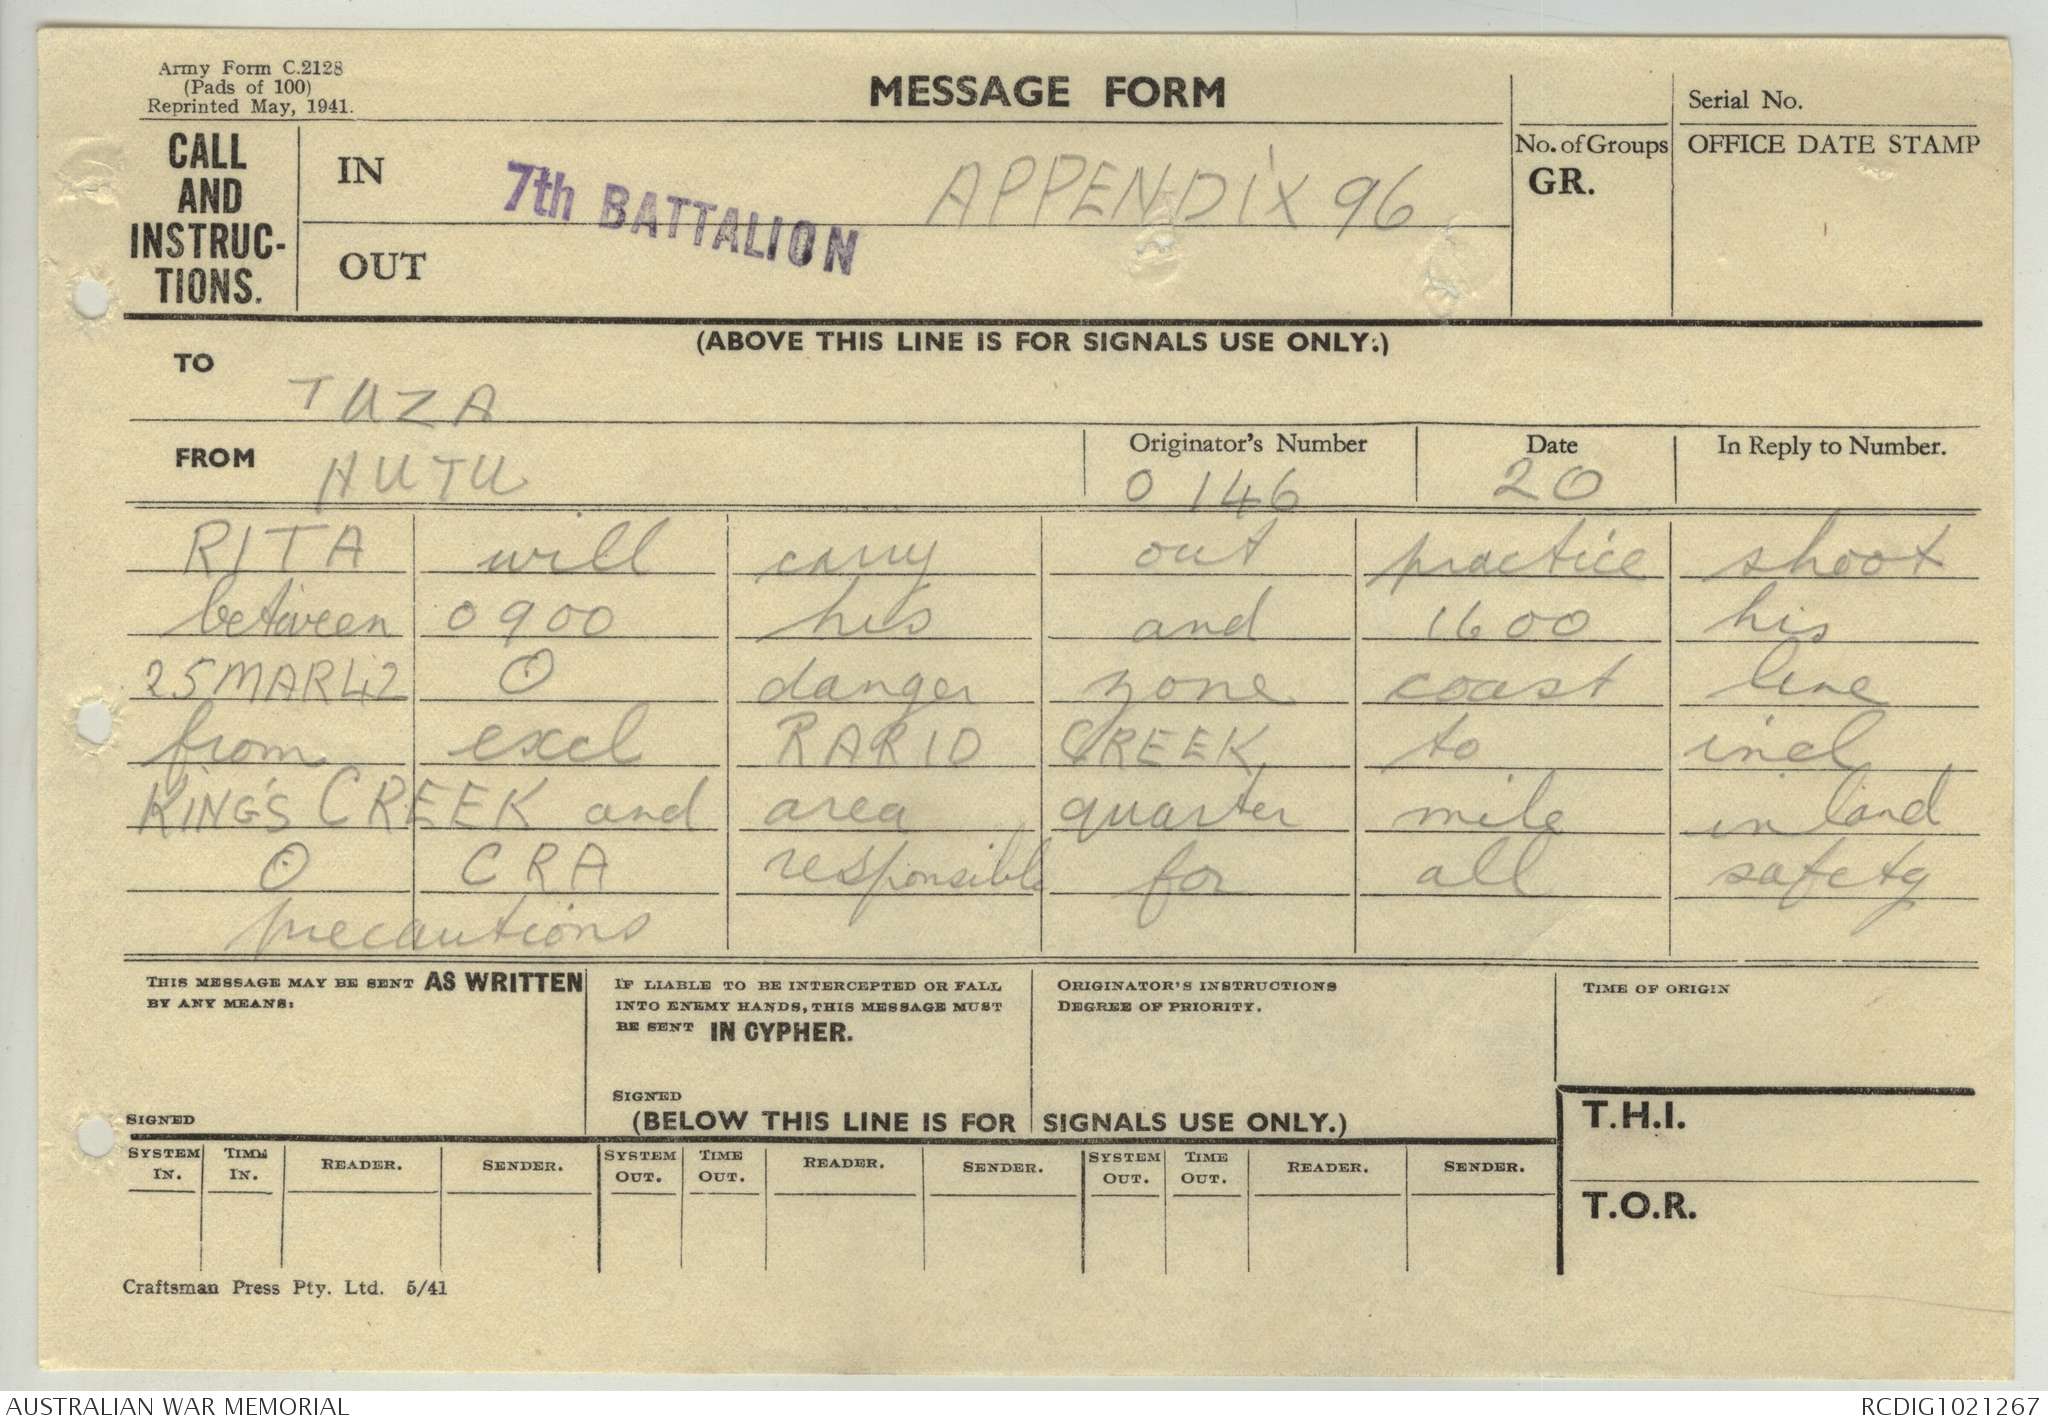 Army Form C.2128
(Pads of 100)
Reprinted May, 1941.
MESSAGE FORM
Serial No.
CALL
AND
INSTRUC-
TIONS.
IN
OUT
7th BATTALION
APPENDIX 96
No. of Groups
GR.
OFFICE DATE STAMP
(ABOVE THIS LINE IS FOR SIGNALS USE ONLY.)
TO
TUZA
FROM
HUTU
Originator's Number
0146
Date
20
In Reply to Number.
RITA will carry out practice shoot
between 0900 hrs and 1600 hrs
25MAR42 ⊙ danger zone coast line
from excl RAPID CREEK to incl
KING'S CREEK and area quarter mile inland
⊙ CRA responsible for all safety
precautions
THIS MESSAGE MAY BE SENT AS WRITTEN
BY ANY MEANS:
SIGNED
IF LIABLE TO BE INTERCEPTED OR FALL
INTO ENEMY HANDS, THIS MESSAGE MUST
BE SENT IN CYPHER.
SIGNED
ORIGINATOR'S INSTRUCTIONS
DEGREE OF PRIORITY.
TIME OF ORIGIN
(BELOW THIS LINE IS FOR SIGNALS USE ONLY.)
T.H.I.
T.O.R.
SYSTEM IN. TIME IN. READER. SENDER. SYSTEM OUT. TIME OUT. READER. SENDER. SYSTEM OUT. TIME OUT. READER. SENDER.
Craftsman Press Pty. Ltd. 5/41
AUSTRALIAN WAR MEMORIAL
RCDIG1021267